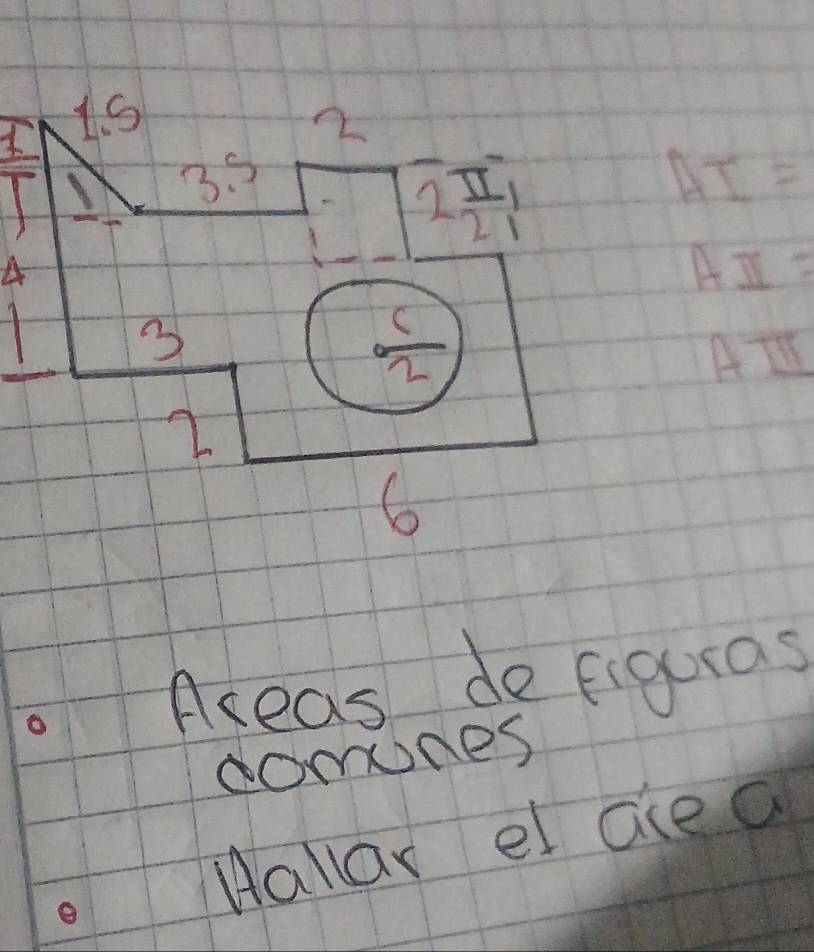 1.5
2
I
3.5
1
2 II
2
AI =
4
AII =
3
r
2
AIII
2
6
• Areas de figuras
comunes
• Hallar el área